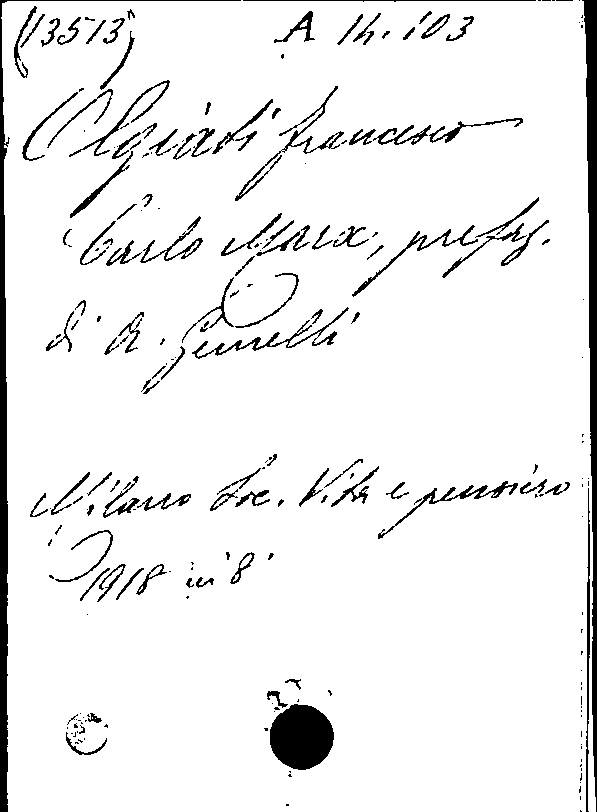 (13513) A 14. 103
Olgiati Francesco
Carlo Marx, prefaz.
di A. Gemelli
Milano Soc. Vita e pensiero
1918 in 8°